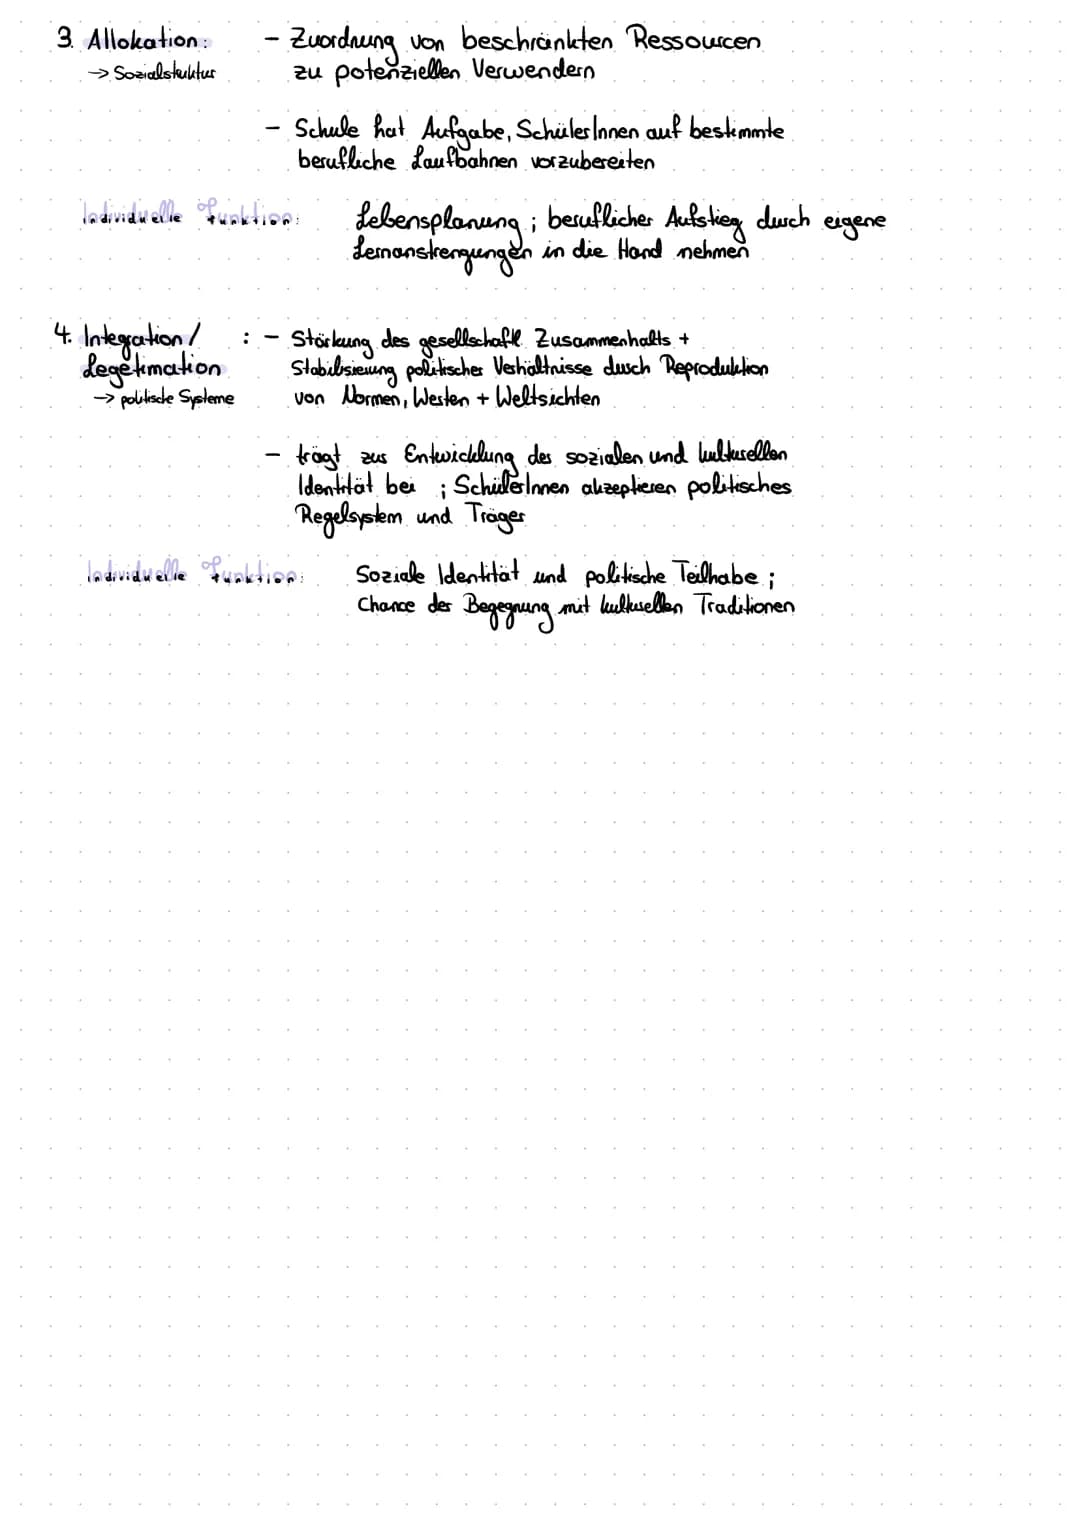 3. Allokation: - Zuordnung von beschränkten Ressourcen
→ Sozialstuktur zu potenziellen Verwendern
- Schule hat Aufgabe, SchülerInnen auf bestimmte
berufliche Laufbahnen vorzubereiten
Individuelle Funktion: Lebensplanung; beruflicher Aufstieg durch eigene
Lernanstrengungen in die Hand nehmen
4. Integration/ : - Stärkung des gesellschaftl. Zusammenhalts +
Legetimation Stabilisierung politischer Verhältnisse durch Reproduktion
→ politische Systeme von Normen, Werten + Weltsichten
- trägt zur Entwicklung der sozialen und kulturellen
Identität bei ; SchülerInnen akzeptieren politisches
Regelsystem und Träger
Individuelle Funktion: Soziale Identität und politische Teilhabe ;
Chance der Begegnung mit kulturellen Traditionen